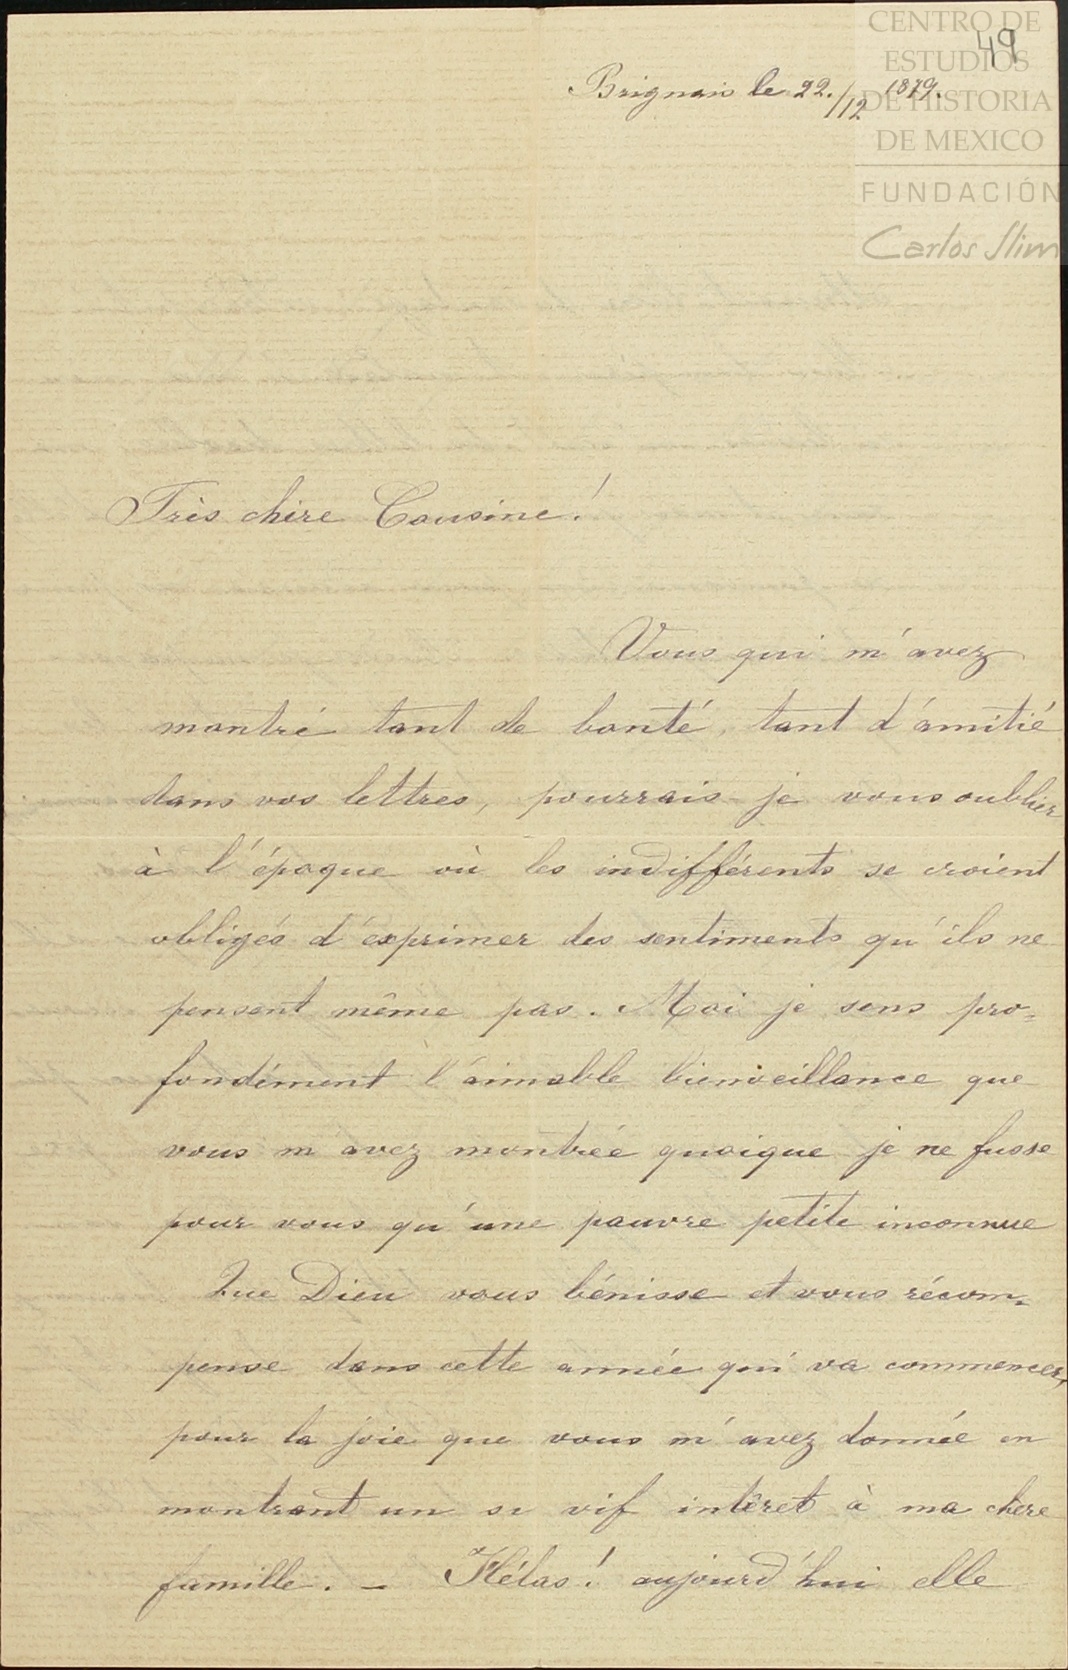 CENTRO DE
ESTUDIOS
DE HISTORIA
DE MEXICO
FUNDACIÓN
Carlos Slim
49
Brignais le 22./12 1879.
Très chère Cousine!
Vous qui m'avez
montré tant de bonté, tant d'amitié
dans vos lettres, pourrais-je vous oublier
à l'époque où les indifférents se croient
obligés d'éxprimer des sentiments qu'ils ne
pensent même pas. Moi je sens pro=
fondément l'aimable bienveillance que
vous m'avez montrée quoique je ne fusse
pour vous qu'une pauvre petite inconnue
Que Dieu vous bénisse et vous récom=
pense dans cette année qui va commencer,
pour la joie que vous m'avez donnée en
montrant un si vif intêret à ma chère
famille. – Hélas! aujourd'hui elle